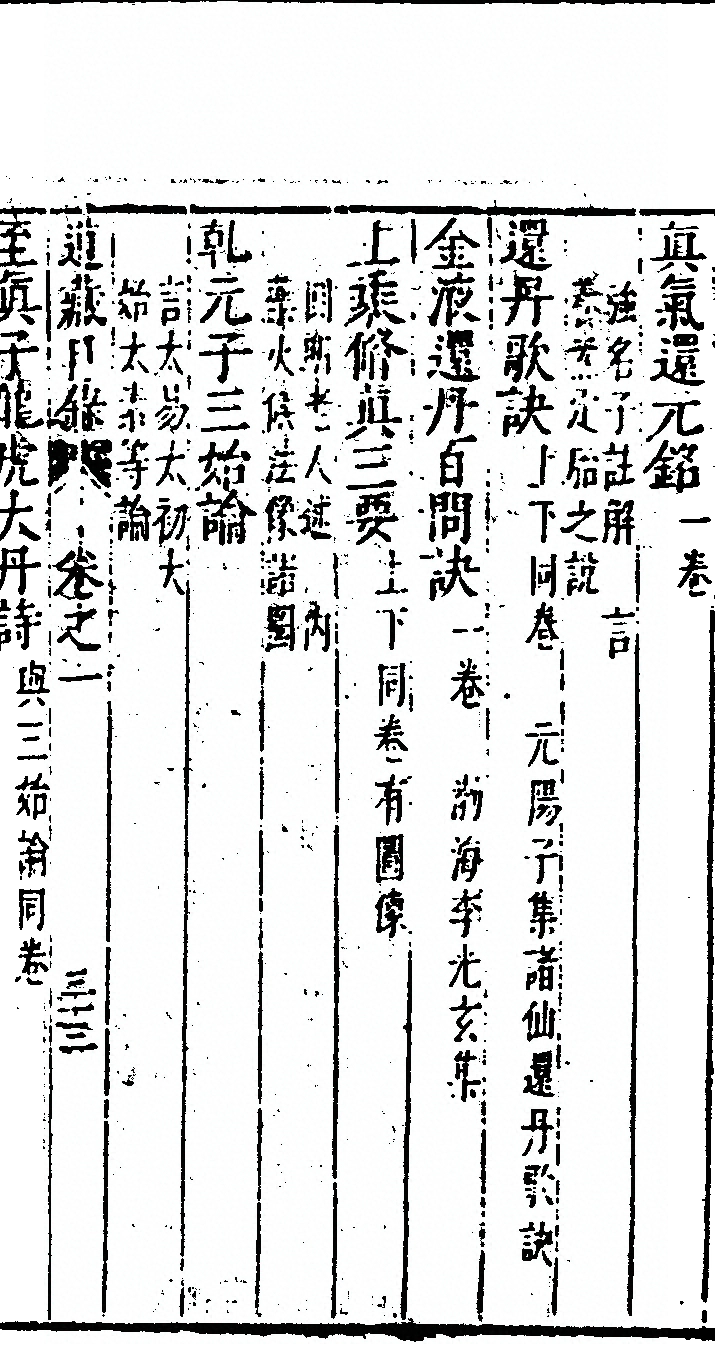 真氣還元銘一卷
強名子註解　言
養
定胎之說
還丹歌訣上下同卷　元陽子集諸仙還丹歌訣
金液還丹百問訣一卷　渤海李光玄集
上乘修真三要上下同卷有圖像
圓明老人述　內
藥火候法像諸圖
乾元子三始論
言太易太初太
始太素等論
道藏目錄　卷之一　三十三
至真子龍虎大丹詩與三始論同卷